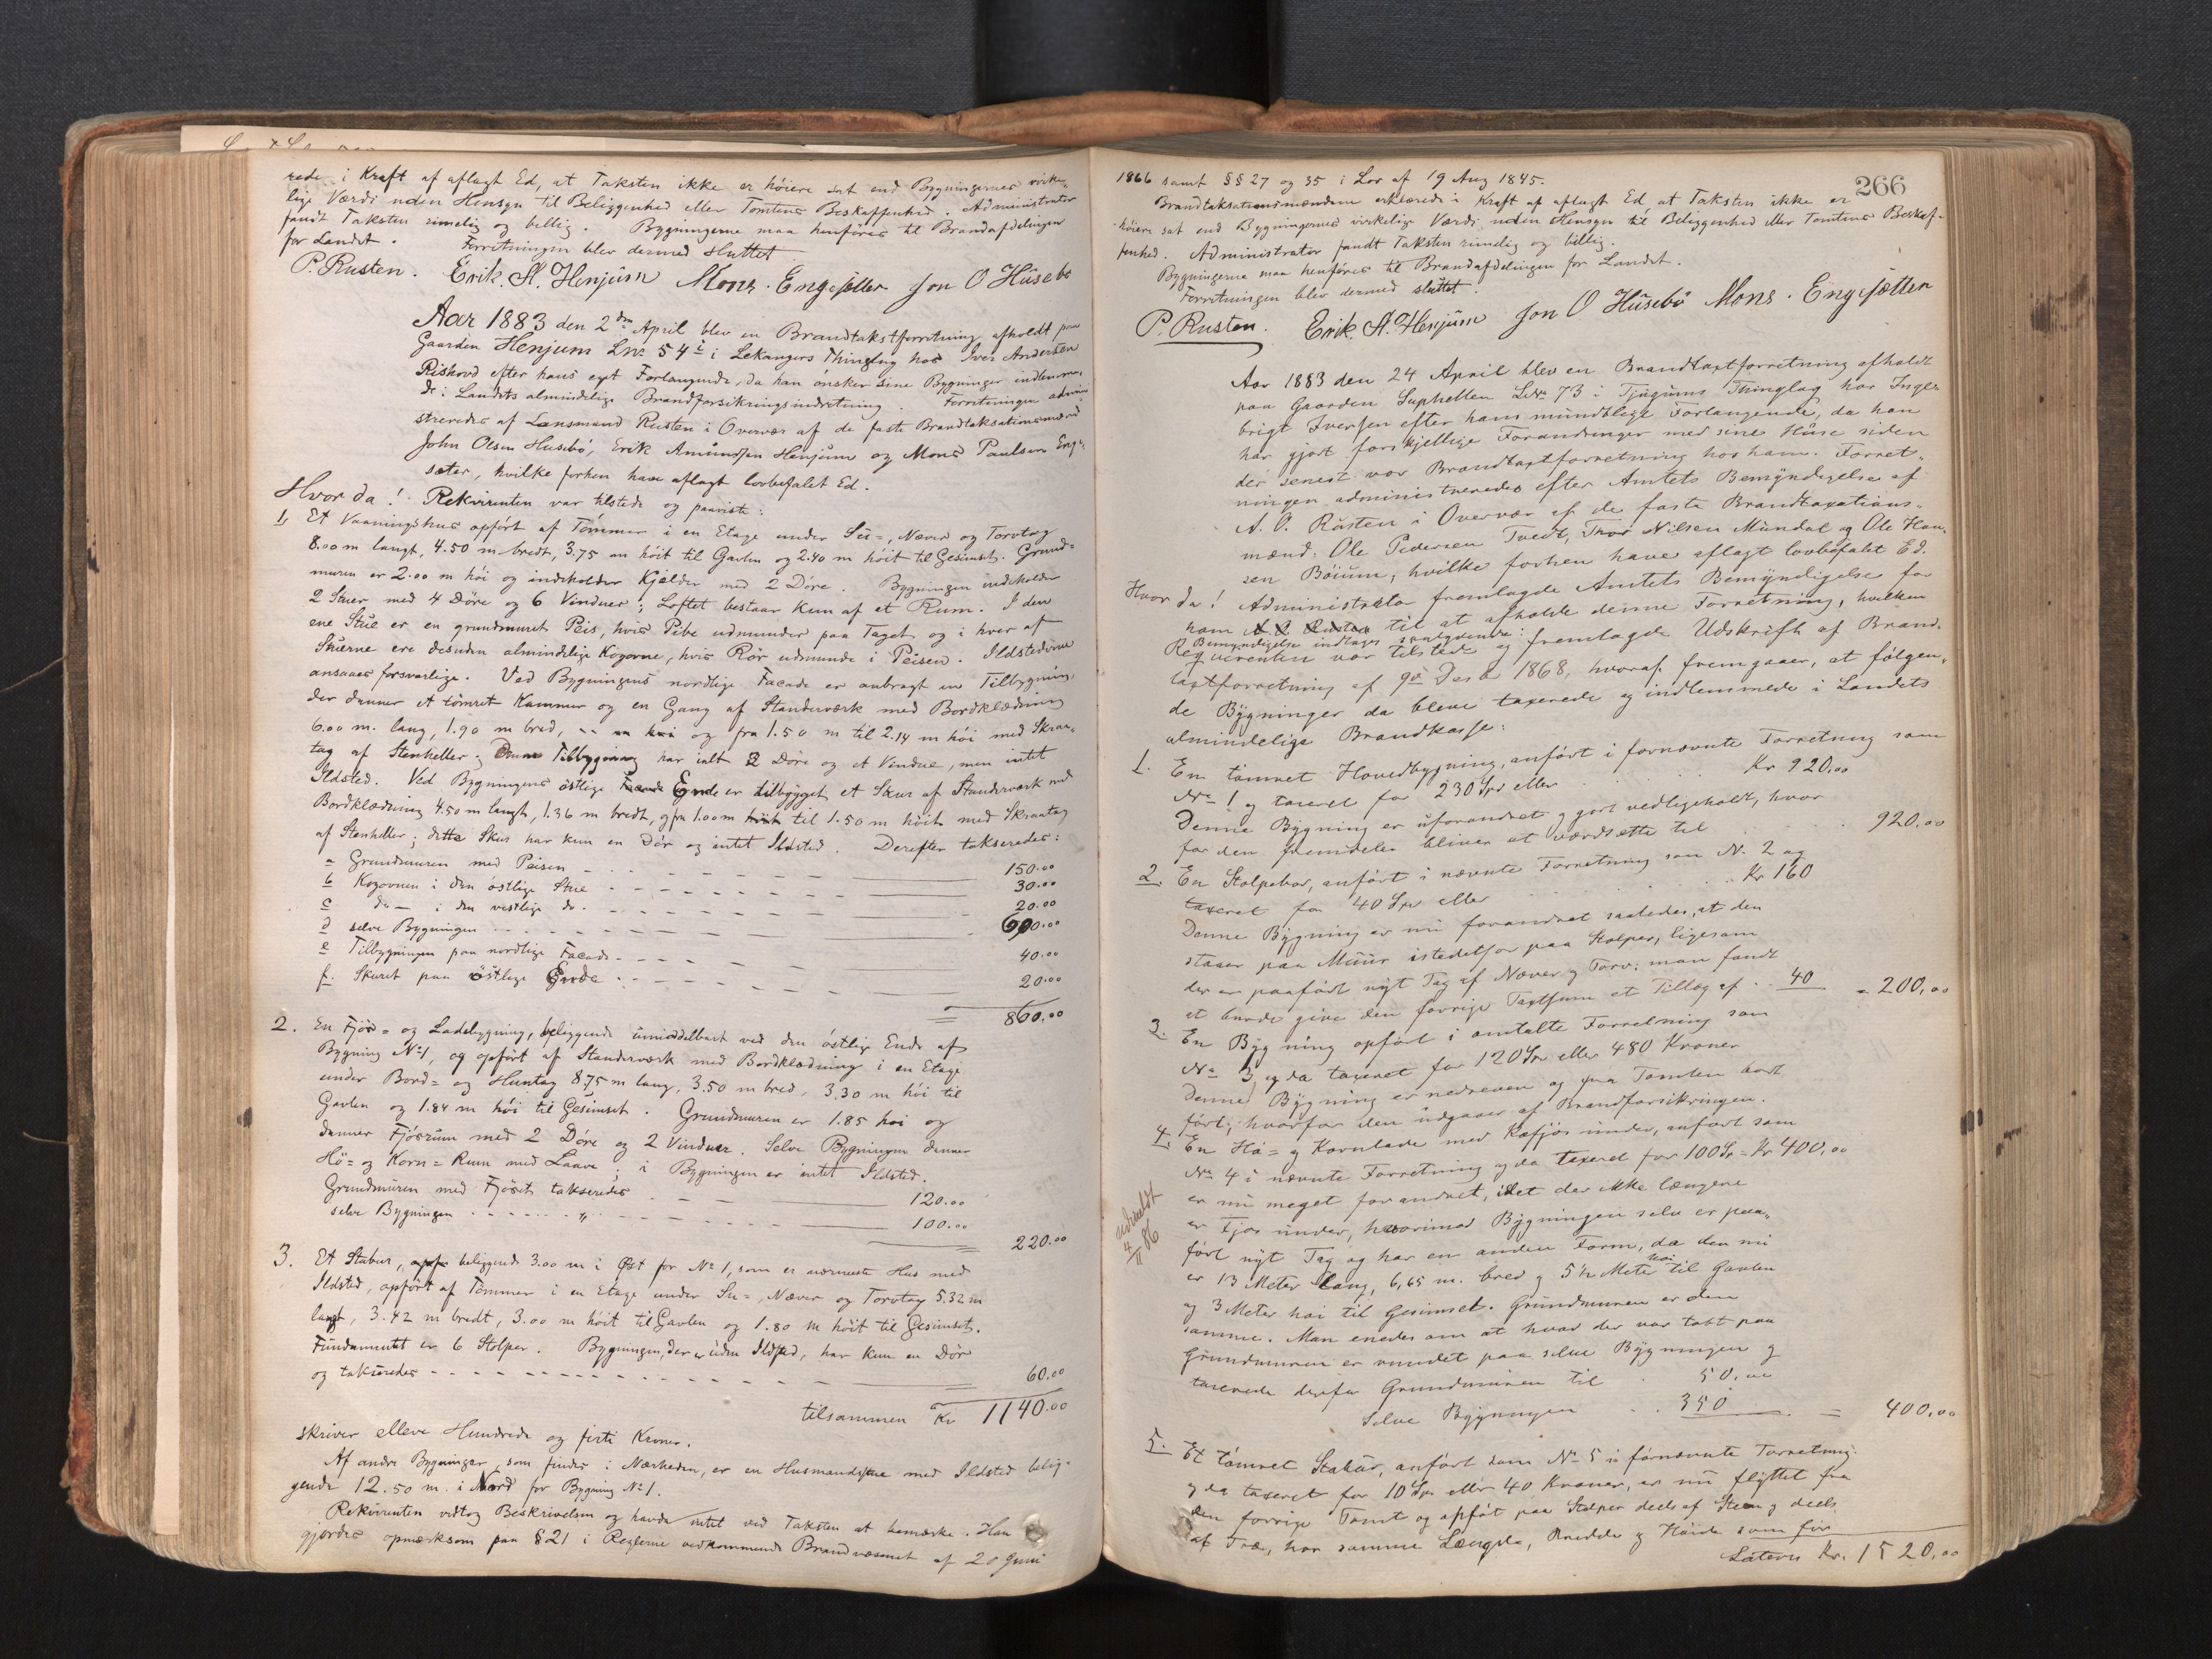 rede i Kraft af aflagt Ed, at Taksten ikke er höiere sat end Bygningernes virke-
lige Værdi uden Hensyn til Beliggenhed eller Tomtens Beskaffenhed. Administrator
fandt Taksten rimelig og billig. Bygningerne maa henföres til Brandafdelingen
for Landet. Forretningen blev dermed sluttet
P. Rusten. Erik. A. Henjüm Mons. Engesetter Jon O Hüsebö
Aar 1883 den 2den April blev en Brandtakstforretning afholdt paa
Gaarden Henjum Lno 54 i Lekangers Thinglag hos Iver Andersen
Riskovd efter hans eget Forlangende, da han önsker sine Bygninger indlemme-
de i Landets almindelige Brandforsikringsindretning. Forretningen admini-
streredes af Lensmand Rusten i Overvær af de faste Brandtaksationsmænd
John Olsen Husebö, Erik Amundsen Henjum og Mons Paulsen Eng-
sæter, hvilke forhen have aflagt lovbefalet Ed.
Hvor da! Rekvirenten var tilstede og paaviste:
1, Et Vaaningshus opfört af Tömmer i en Etage under Su-, Næver og Torvtag
8.00 m langt, 4.50 m bredt, 3.75 m höit til Gavlen og 2.40 m höit til Gesimset. Grund-
muren er 2.00 m höi og indeholder Kjælder med 2 Döre. Bygningen indeholder
2 Stuer med 4 Döre og 6 Vinduer; Loftet bestaar kun af et Rum. I den
ene Stue er en grundmuret Peis, hvis Pibe udmunder paa Taget og i hver af
Stuerne ere desuden almindelige Kogovne, hvis Rör udmunde i Peisen. Ildstederne
ansaaes forsvarlige. Ved Bygningens nordlige Facade er anbragt en Tilbygning,
der danner et tömret Kammer og en Gang af Standerværk med Bordklædning
6.00 m. lang, 1.90 m bred, og fra 1.50 m til 2.14 m höi med Skraa-
tag af Stenheller; Denne Tilbygning har ialt 2 Döre og et Vindue, men intet
Ildsted. Ved Bygningens östlige Ende er tilbygget et Skur af Standerværk med
Bordklædning 4.50 m langt, 1.36 m bredt, og fra 1.00 m til 1.50 m höit med Skraatag
af Stenheller; dette Skur har kun en Dör og intet Ildsted. Derefter takseredes:
a Grundmuren med Peisen 150.00
b Kogovnen i den östlige Stue 30.00
c do — i den vestlige do. 20.00
d selve Bygningen 600.00
e Tilbygningen paa nordlige Facade 40.00
f. Skuret paa östlige Ende 20.00
= 860.00
2. En Fjös- og Ladebygning, beliggende umiddelbart ved den östlige Ende af
Bygning No 1, og opfört af Standerværk med Bordklædning i en Etage
under Bord- og Huntag 8.75 m lang, 3.50 m bred, 3.30 m höi til
Gavlen og 1.84 m höi til Gesimset. Grundmuren er 1.85 höi og
danner Fjösrum med 2 Döre og 2 Vinduer. Selve Bygningen danner
Hö- og Korn-Rum med Laave; i Bygningen er intet Ildsted.
Grundmuren med Fjöset takseredes 120.00
selve Bygningen " 100.00
220.00
3. Et Stabur, beliggende 3.00 m i Öst for No 1, som er nærmeste Hus med
Ildsted, opfört af Tömmer i en Etage under Su-, Næver og Torvtag 5.32 m
langt, 3.42 m bredt, 3.00 m höit til Gavlen og 1.80 m höit til Gesimset.
Fundamentet er 6 Stolper. Bygningen, der er uden Ildsted, har kun en Dör
og takseredes 60.00
tilsammen Kr 1140.00
skriver elleve Hundrede og firti Kroner.
Af andre Bygninger, som findes i Nærheden, er en Husmandstue med Ildsted belig-
gende 12.50 m. i Nord for Bygning No 1.
Rekvirenten vedtog Beskrivelsen og havde intet ved Taksten at bemærke. Han
gjordes opmærksom paa § 21 i Reglerne vedkommende Brandvæsenet af 20 Juni
266
1866 samt §§ 27 og 35 i Lov af 19 Aug 1845.
Brandtaksationsmændene erklærede i Kraft af aflagt Ed, at Taksten ikke er
höiere sat end Bygningernes virkelige Værdi uden Hensyn til Beliggenhed eller Tomtens Beskaf-
fenhed. Administrator fandt Taksten rimelig og billig.
Bygningerne maa henföres til Brandafdelingen for Landet.
Forretningen blev dermed sluttet.
P. Rusten. Erik. A. Henjüm Jon O Hüsebö Mons. Engesetter
Aar 1883 den 24 April blev en Brandtaxtforretning afholdt
paa Gaarden Suphellen LNo 73 i Tjugums Thinglag hos Inge-
brigt Iversen efter hans mündtlige Forlangende, da han
har gjort forskjellige Forandringer med sine Hüse siden
der senest var Brandtaxtforretning hos ham. Forret-
ningen administreredes efter Amtets Bemyndigelse af
A. O. Rusten i Overvær af de faste Brandtaxations-
mænd: Ole Pedersen Tvedt, Thor Nilsen Mundal og Ole Han-
sen Böium, hvilke forhen have aflagt lovbefalet Ed.
Hvor da! Administrator fremlagde Amtets Bemyndigelse for
ham til at afholde denne Forretning, hvilken
Bemyndigelse indtages saalydende:
Reqvirenten var tilstede og fremlagde Udskrift af Brand-
taxtforretning af 9de Decbr 1868, hvoraf fremgaaer, at følgen-
de Bygninger da bleve taxerede og indlemmede i Landets
almindelige Brandkasse:
1. En tömret Hovedbygning, anfört i fornævnte Forretning som
No 1 og taxeret for 230 Spd eller Kr 920,00
Denne Bygning er uforandret og godt vedligeholdt, hvor
for den fremdeles bliver at værdsætte til 920,00
2. En Stolpebod, anfört i nævnte Forretning som No 2 og
taxeret for 40 Spd eller Kr 160
Denne Bygning er nu forandret saaledes, at den
staaer paa Muur istedetfor paa Stolper, ligesom
der er paafört nyt Tag af Næver og Torv; man fandt
at burde give den forrige Taxtsum et Tillæg af 40 = 200,00
3. En Bygning opfört i omtalte Forretning som
No 3 og da taxeret for 120 Spd eller 480 Kroner
Denne Bygning er nedreven og fra Tomten bort
fört; hvorfor den udgaaer af Brandforsikringen.
4. En Hö- og Kornlade med Kofjös under, anfört som
No 4 i nævnte Forretning og da taxeret for 100 Sp = Kr 400,00
er nu meget forandret, idet der ikke længere
er Fjös under, hvorimod Bygningen selv er paa-
fört nyt Tag og har en anden Form, da den nu
er 13 Meter lang, 6,65 m. bred og 5½ Meter höi til Gavlen
og 3 Meter höi til Gesimset. Grundmuren er den
samme. Man enedes om at hvad der var tabt paa
Grundmuren er vundet paa selve Bygningen og
taxerede derfor Grundmuren til 50,00
Selve Bygningen 350 = 400,00
udmeldt
4/11 86
5. Et tömret Stabur, anfört som No 5 i fornævnte Forretning
og da taxeret for 10 Spd eller 40 Kroner, er nu flyttet fra
den forrige Tomt og opfört paa Stolper deels af Steen og deels
af Træ, har samme Længde, Bredde og Höide som för
Lateris Kr. 1520,00